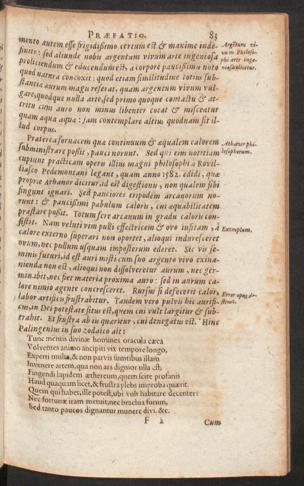 PRÆFATIO. 83
mento autem esse frigidissimo certum est & maxime inde-
finite: sed aliunde nobis argentum vivum arte ingeniosa
proliciendum & educendum est, à corpore paucissimis noto
quod natura concoxit: quod etiam similitudine totius sub-
stantiæ aurum magis referat, quam argentum vivum vul-
gare, quodque nulla arte, sed primo quoque contactu & at-
tritu cum auro non minus libenter coeat & misceatur
quam aqua aquæ: jam contemplare altius quodnam sit il-
lud corpus.
Argentum vi-
vum Philoso-
phi arte inge-
niosa
Præterea fornacem quæ continuum & æqualem calorem
subministrare possit, pauci norunt. Sed qui eius notitiam
cupiunt practicam operis illius magni philosophi à Rovil-
lasco Pedemontani legant, quam anno 1582. edidi, quæ
proprie Athanor dicitur, id est digestionis, quam qualem sibi
fingunt ignari. Sed pauciores
norunt: & paucissimi pabulum caloris, cui æquabilitatem
præstare possit. Totum fere arcanum in gradu caloris con-
sistit. Nam veluti vim pulli effectricem & ovo insitam, à
calore externo superari non oportet, alioqui induresceret
ovum, nec pullum usquam impositurum ederet. Sic vis se-
minis futuri, id est auri misti cum suo argento vivo exina-
nienda non est, alioqui non dissolveretur aurum, nec ger-
minabit, aut fiet materia proxima auro: sed in aurum ca-
lore nimio agente concresceret. Rursus si defecerit calor,
labor artificis frustrabitur. Tandem vero pulvis hic aurifi-
cus, in Dei potestate situs est, quem cui vult largitur & sub-
trahit. Et frustra ab iis quæritur, cui denegatus est. Hinc
Palingenius in suo zodaico ait:
Athanor phi-
losophorum.
Exemplum.
Error opus de-
struit.
Tunc mentis divinæ homines oracula cæca
Volventes animo incipiti vix tempore longo,
Experti multa, & non parvis sumtibus illam
Invenere artem, qua non ars dignior ulla est,
Fingendi lapidem æthereum, quem scire profanis
Haud quaquam licet, & frustra plebs improba quærit.
Quem qui habet, ille potest, ubi vult habitare decenter:
Nec fortunæ iram metuit, nec brachia furum,
Sed tanto paucos dignantur munere divi. &c.
F 2 Cum